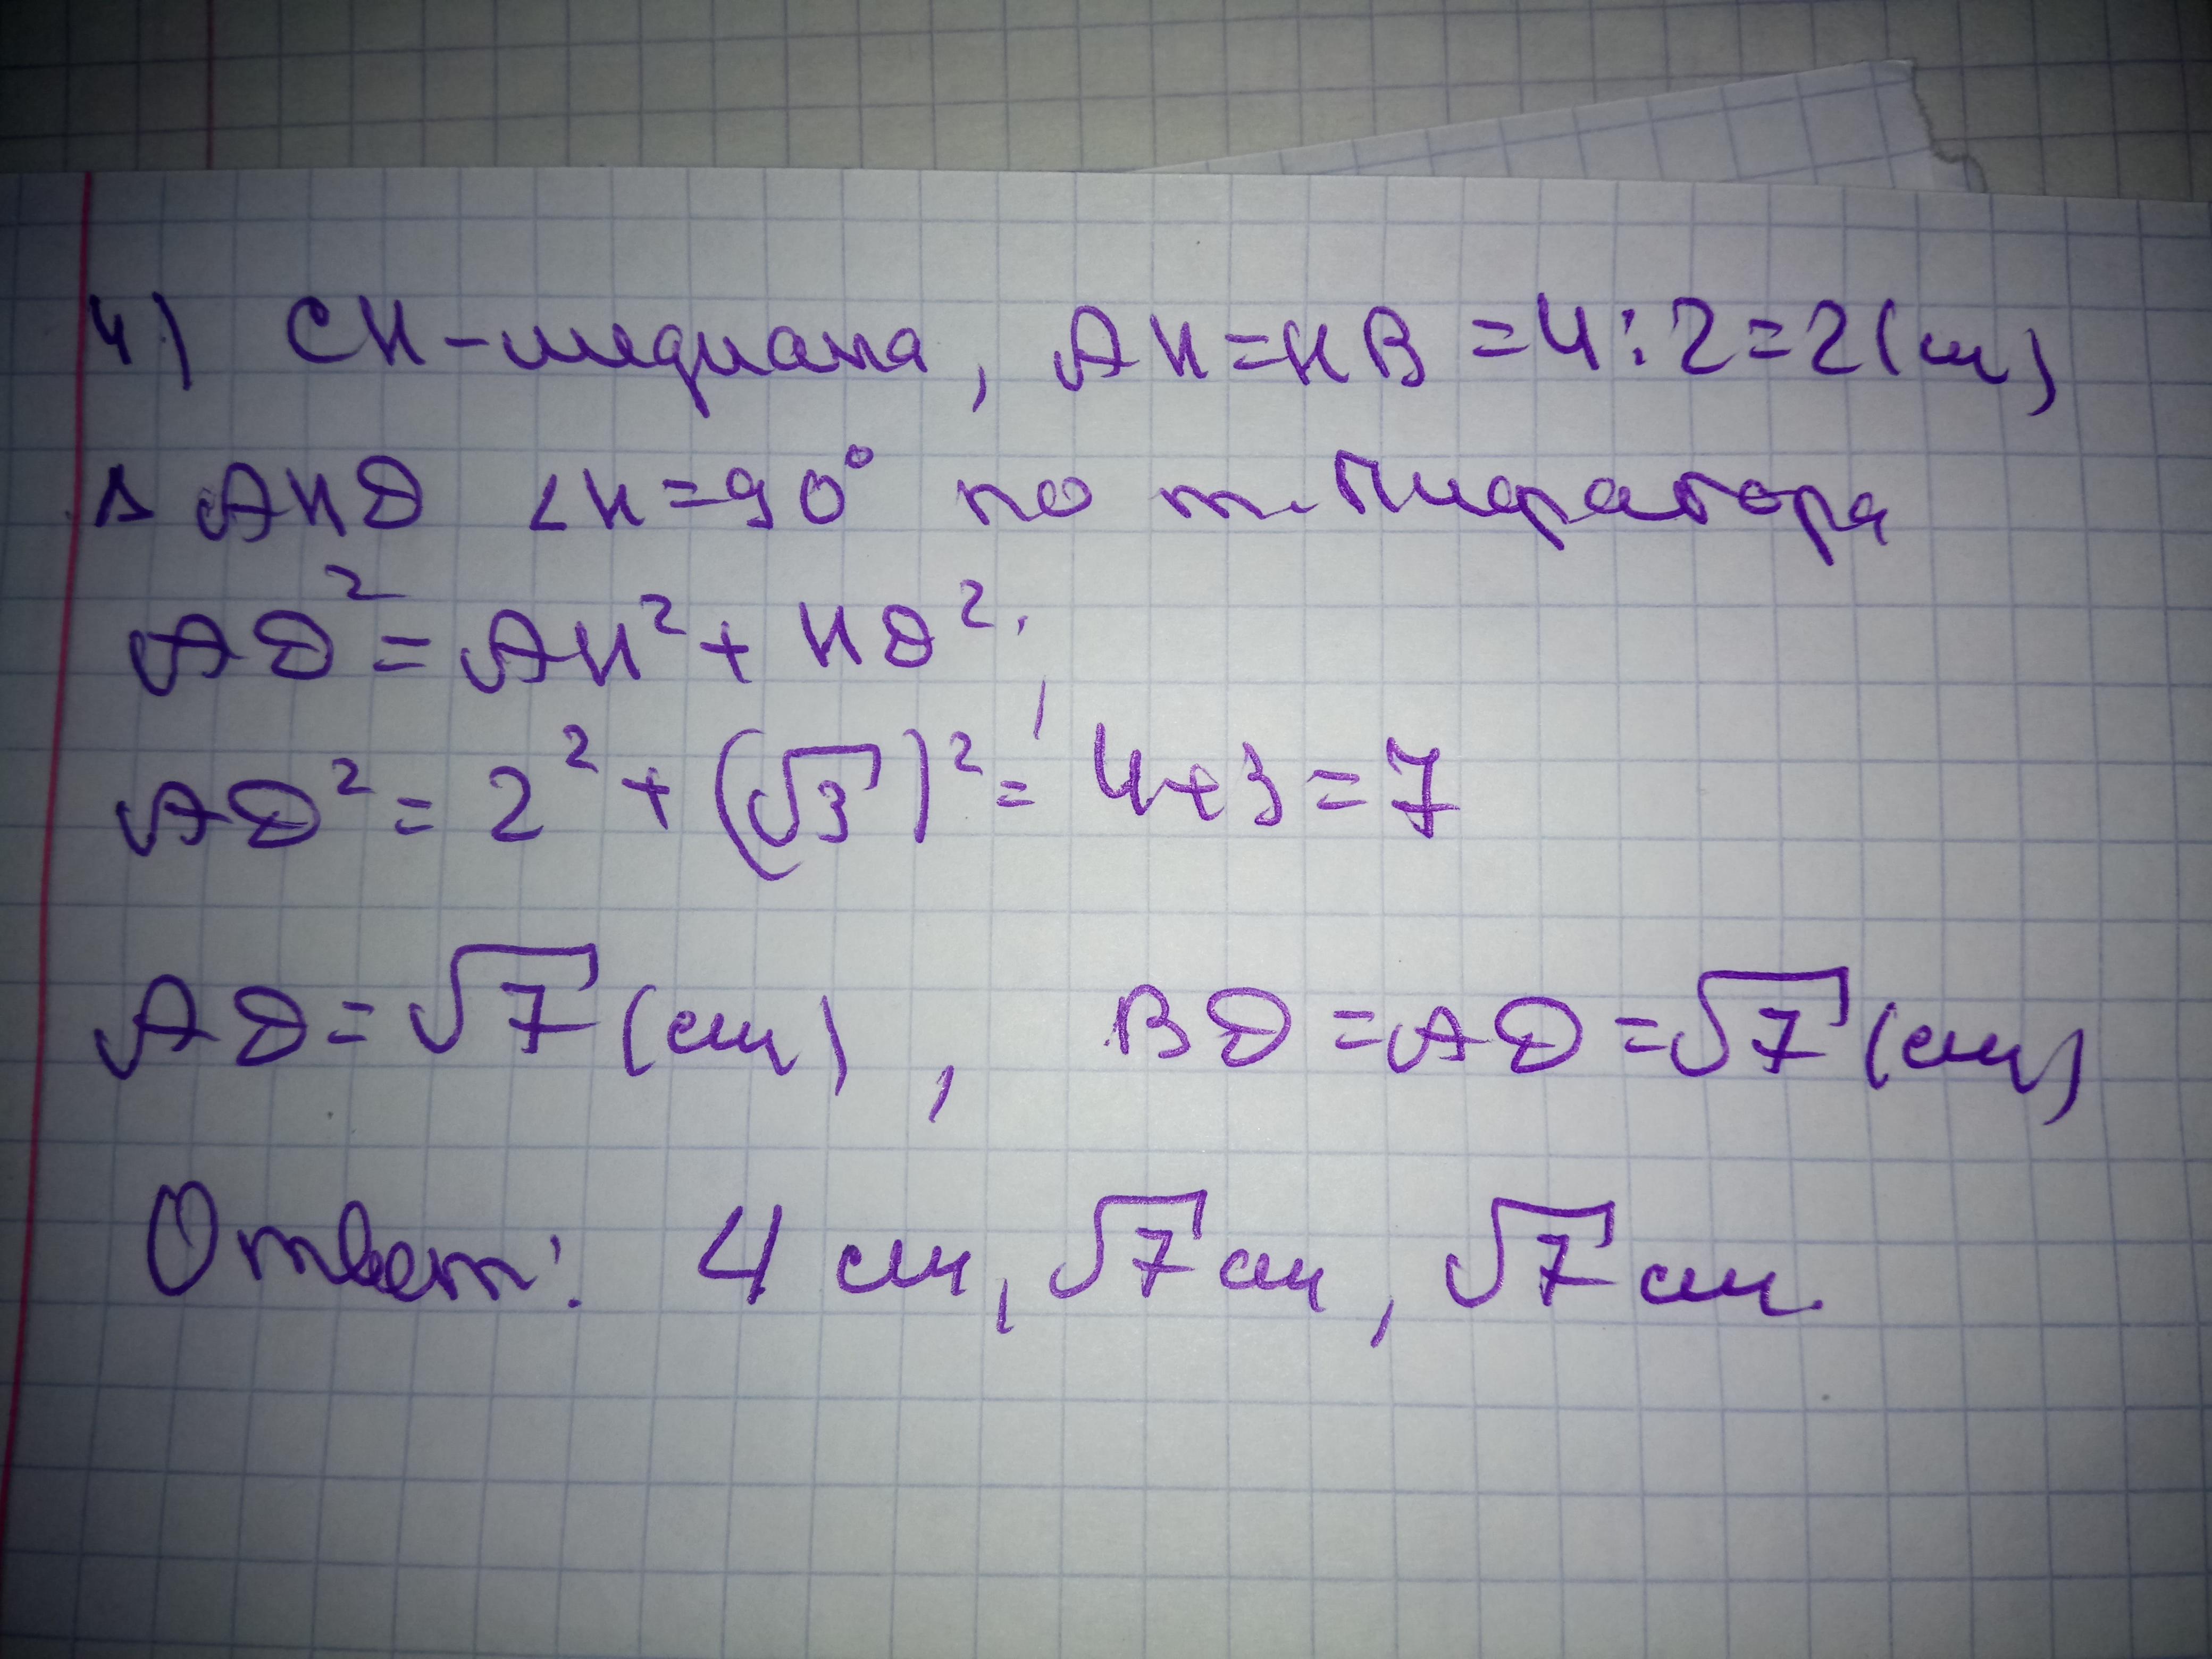 4) CH-медиана, AH=HB=4:2=2(см)
Δ AHD ∠H=90° по т. Пифагора
AD²=AH²+HD²,
AD²=2²+(√3)²=4+3=7
AD=√7(см), BD=AD=√7(см)
Ответ: 4 см, √7 см, √7 см.